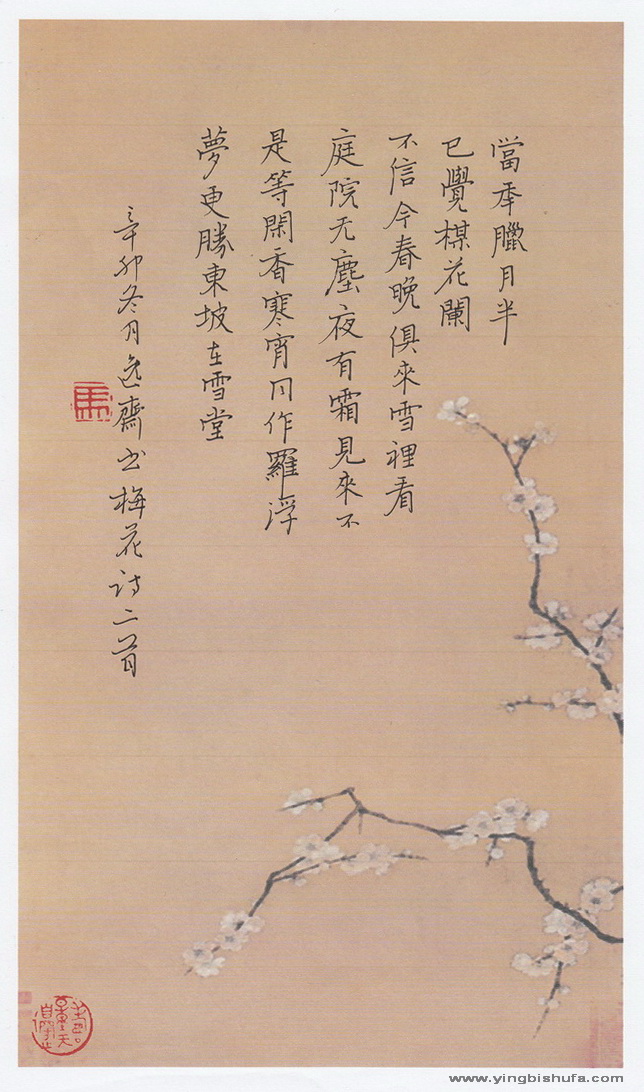 當年臘月半
已覺楳花闌
不信今春晚俱來雪裡看
庭院无塵夜有霜見來不
是等閑香寒宵同作羅浮
夢更勝東坡在雪堂
辛卯冬月逸齋书梅花诗二首
馬
www.yingbishufa.com